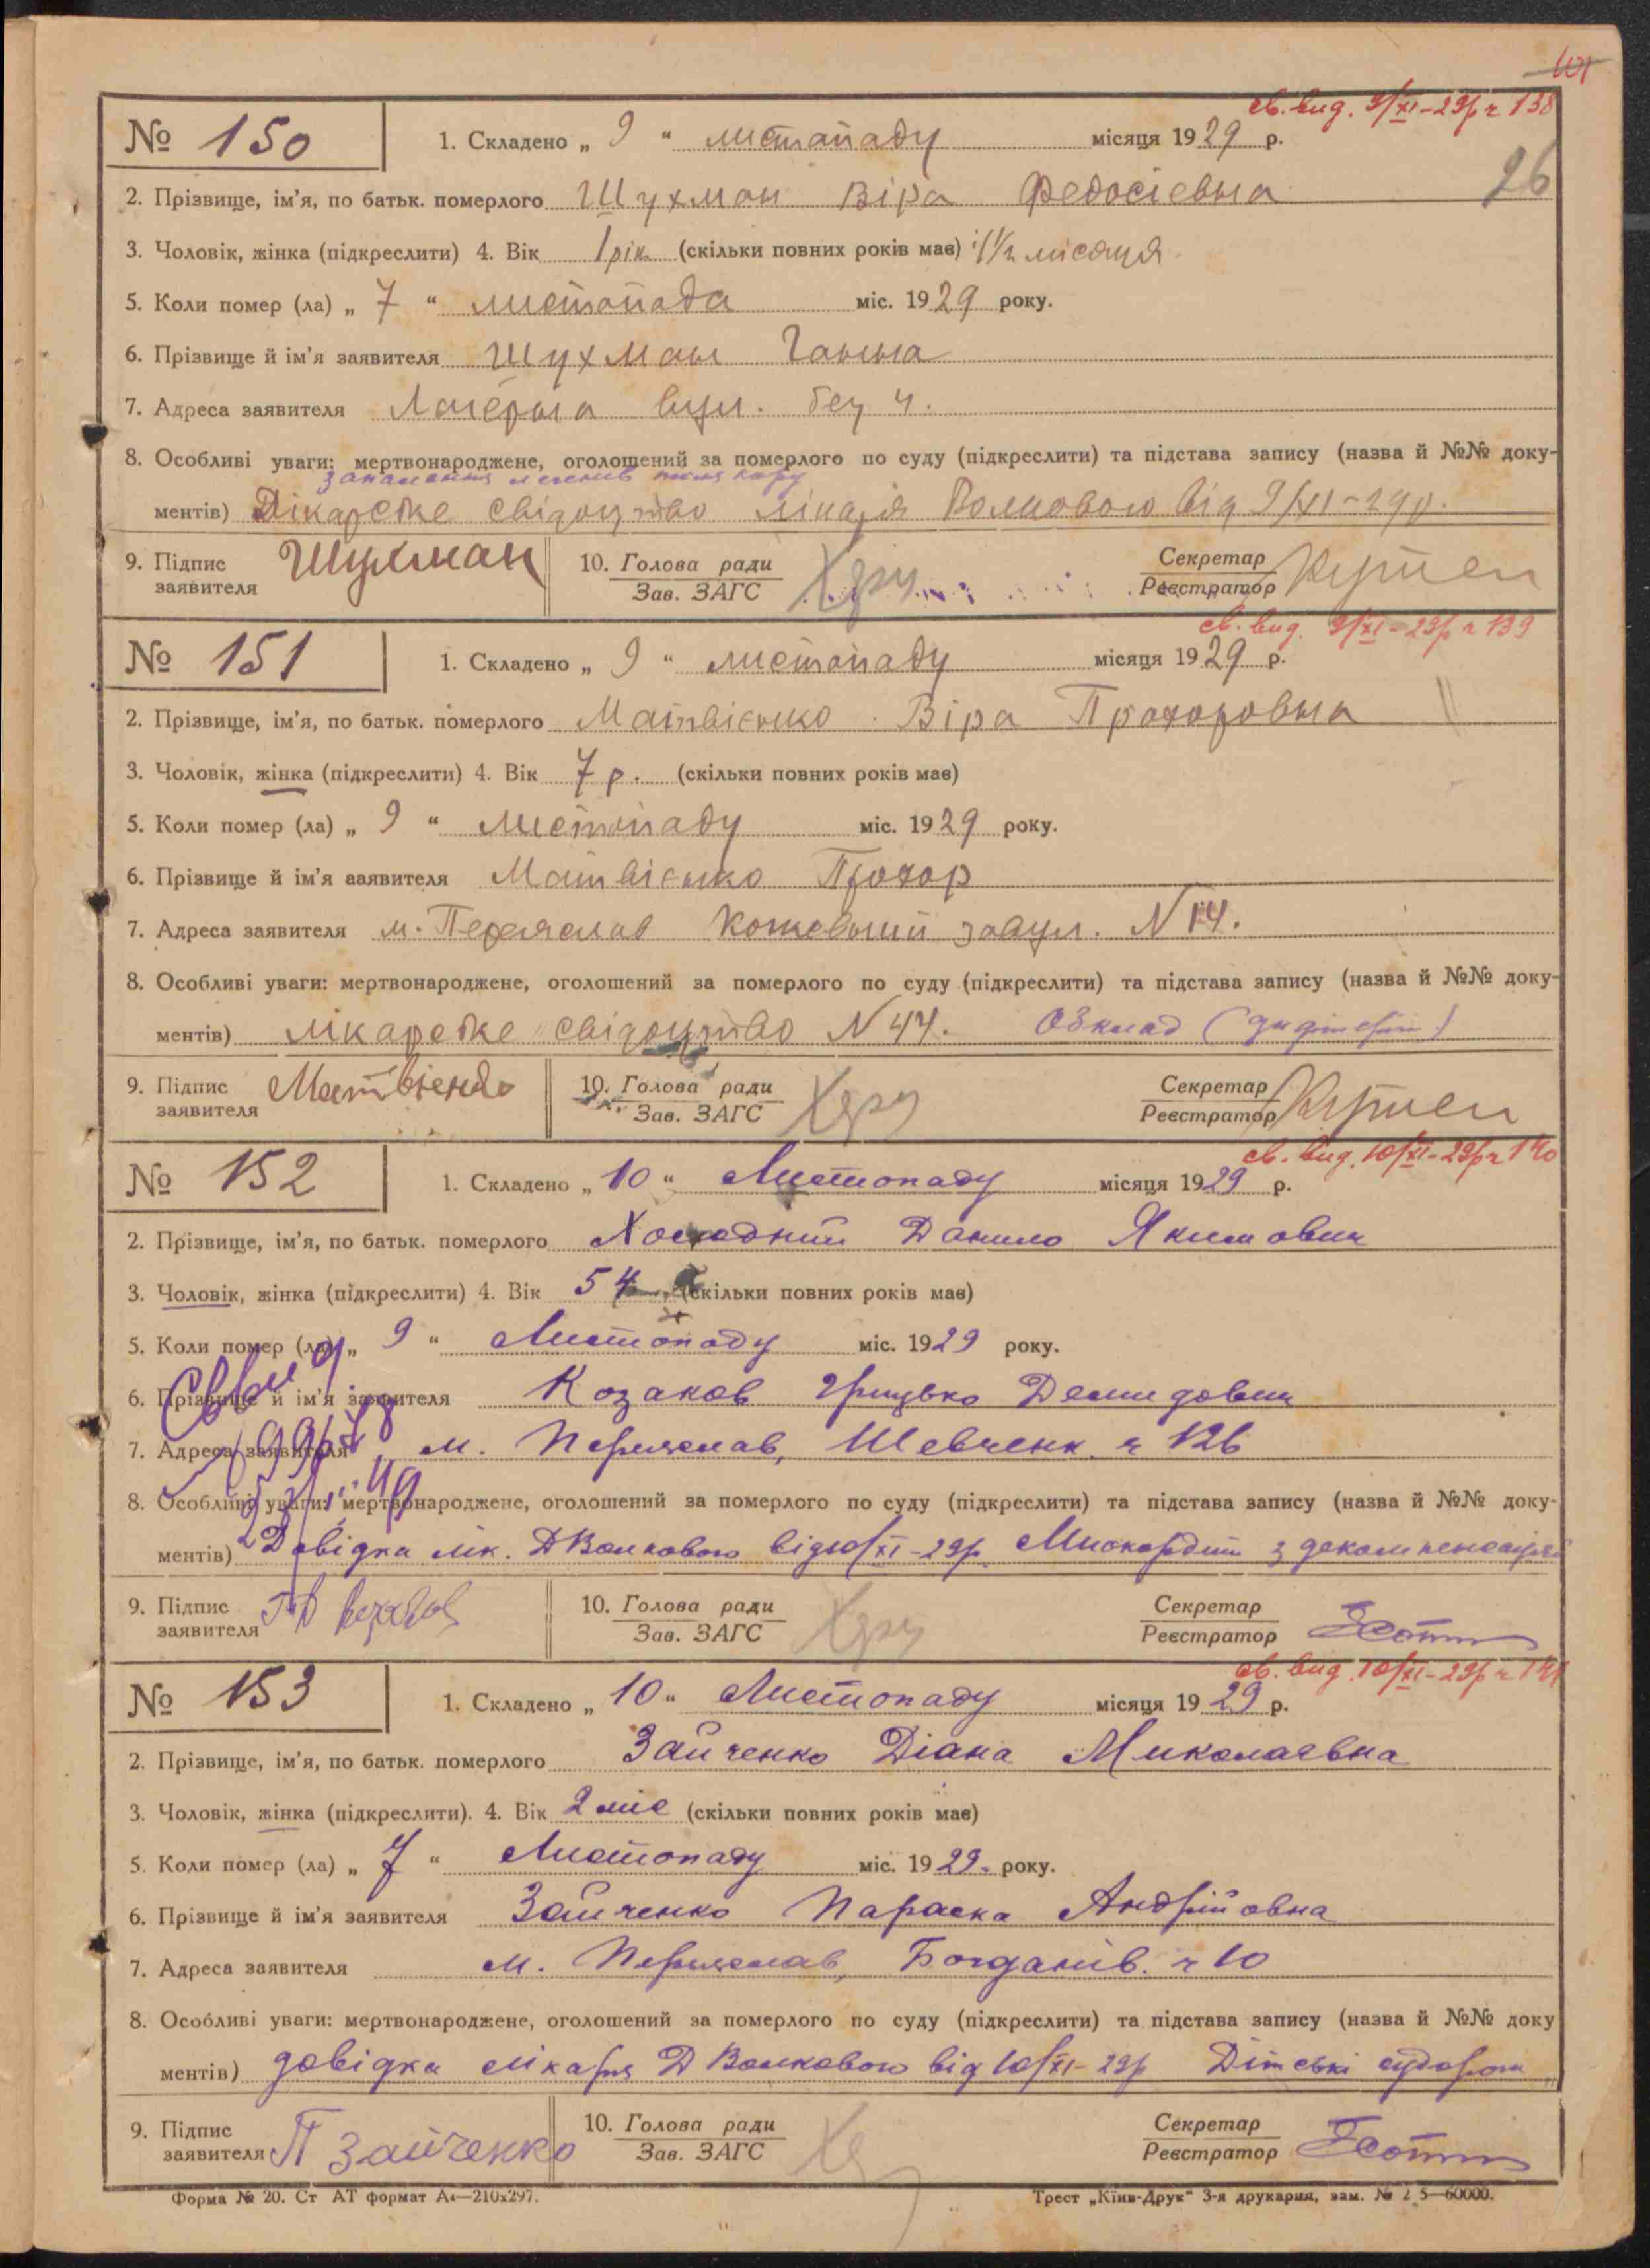 св. вид. 9/XI-29р ч 138
№ 150 1. Складено „ 9 “ листопаду місяця 1929 р.
26
2. Прізвище, ім’я, по батьк. померлого Шухман Віра Федосієвна
3. Чоловік, жінка (підкреслити) 4. Вік 1 рік (скільки повних років має) 1½ місяця
5. Коли помер (ла) „ 7 “ листопада міс. 1929 року.
6. Прізвище й ім’я заявителя Шухман Ганна
7. Адреса заявителя Лагерна вул. без ч.
8. Особливі уваги: мертвонароджене, оголошений за померлого по суду (підкреслити) та підстава запису (назва й №№ доку-
запалення легенів після кору
ментів) Лікарске свідоцтво лікаря Волкового від 9/XI-29р.
9. Підпис заявителя Шухман 10. Голова ради Зав. ЗАГС Секретар Реєстратор
св. вид. 9/XI-29р ч 139
№ 151 1. Складено „ 9 “ листопаду місяця 1929 р.
2. Прізвище, ім’я, по батьк. померлого Матвієнко Віра Прохоровна
3. Чоловік, жінка (підкреслити) 4. Вік 7 р. (скільки повних років має)
5. Коли помер (ла) „ 9 “ листопаду міс. 1929 року.
6. Прізвище й ім’я ааявителя Матвієнко Прохор
7. Адреса заявителя м. Переяслав Кожевний завул. N 14.
8. Особливі уваги: мертвонароджене, оголошений за померлого по суду (підкреслити) та підстава запису (назва й №№ доку-
ментів) лікарске свідоцтво N 44. Обклад (дифтерит)
9. Підпис заявителя Матвієнко 10. Голова ради Зав. ЗАГС Секретар Реєстратор
св. вид. 10/XI-29р ч 140
№ 152 1. Складено „ 10 “ Листопаду місяця 1929 р.
2. Прізвище, ім’я, по батьк. померлого Холодний Данило Якимович
3. Чоловік, жінка (підкреслити) 4. Вік 54 (скільки повних років має)
5. Коли помер (ла) „ 9 “ Листопаду міс. 1929 року.
6. Прізвище й ім’я заявителя Козаков Грицько Демидович
7. Адреса заявителя м. Переяслав, Шевченк. ч 126
8. Особливі уваги: мертвонароджене, оголошений за померлого по суду (підкреслити) та підстава запису (назва й №№ доку-
ментів) Довідка лік. Д Волкового від 10/XI-29р. Миокардит з декомпенсацією
9. Підпис заявителя 10. Голова ради Зав. ЗАГС Секретар Реєстратор
св. вид. 10/XI-29р ч 141
№ 153 1. Складено „ 10 “ Листопаду місяця 1929 р.
2. Прізвище, ім’я, по батьк. померлого Зайченко Діана Миколаєвна
3. Чоловік, жінка (підкреслити). 4. Вік 2 міс (скільки повних років має)
5. Коли помер (ла) „ 7 “ Листопаду міс. 1929. року.
6. Прізвище й ім’я заявителя Зайченко Параска Андрійовна
7. Адреса заявителя м. Переяслав, Богданів. ч 10
8. Особливі уваги: мертвонароджене, оголошений за померлого по суду (підкреслити) та підстава запису (назва й №№ доку
ментів) довідка лікаря Д Волкового від 10/XI-29р Дітські судороги
9. Підпис заявителя П Зайченко 10. Голова ради Зав. ЗАГС Секретар Реєстратор
Форма № 20. Ст АТ формат А4—210х297. Трест „Київ-Друк“ 3-я друкарня, зам. № 2 5—60000.